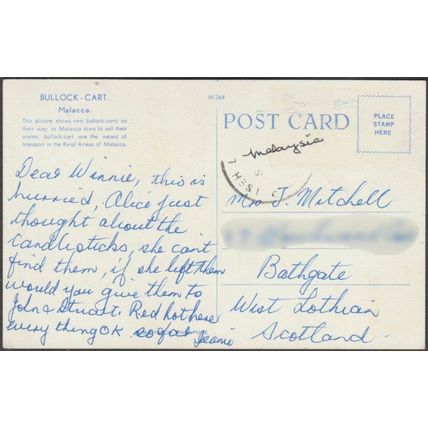 BULLOCK-CART.
Malacca.
This picture shows two bullock-carts on
their way to Malacca town to sell their
wares, bullock-cart are the means of
transport in the Rural Areas of Malacca.
Dear Winnie, this is
hurried, Alice just
thought about the
candlesticks, she can't
find them, if she left them
would you give them to
John & Stuart. Red hot here
everything OK so far
Jeanie
M 264
POST CARD
PLACE
STAMP
HERE
Malaysia
Mrs J. Mitchell
Bathgate
West Lothian
Scotland.